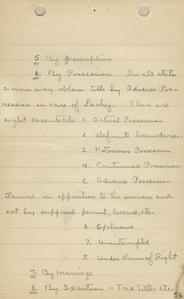 5. By prescription
6. By Possession. In all states
a man may obtain title by Adverse Pos-
session in case of Laches. There are
eight essentials 1. Actual Possession
2. Definite boundaries.
3. Notorious Possession
4. Continued Possession
5. Adverse Possession
Claimed in opposition to the owners and
not by supposed permit, license, etc.
6. Exclusive
7. Uninterrupted
8. Under Claim of Right
7. By Marriage
8. By Execution - Tax Titles etc.